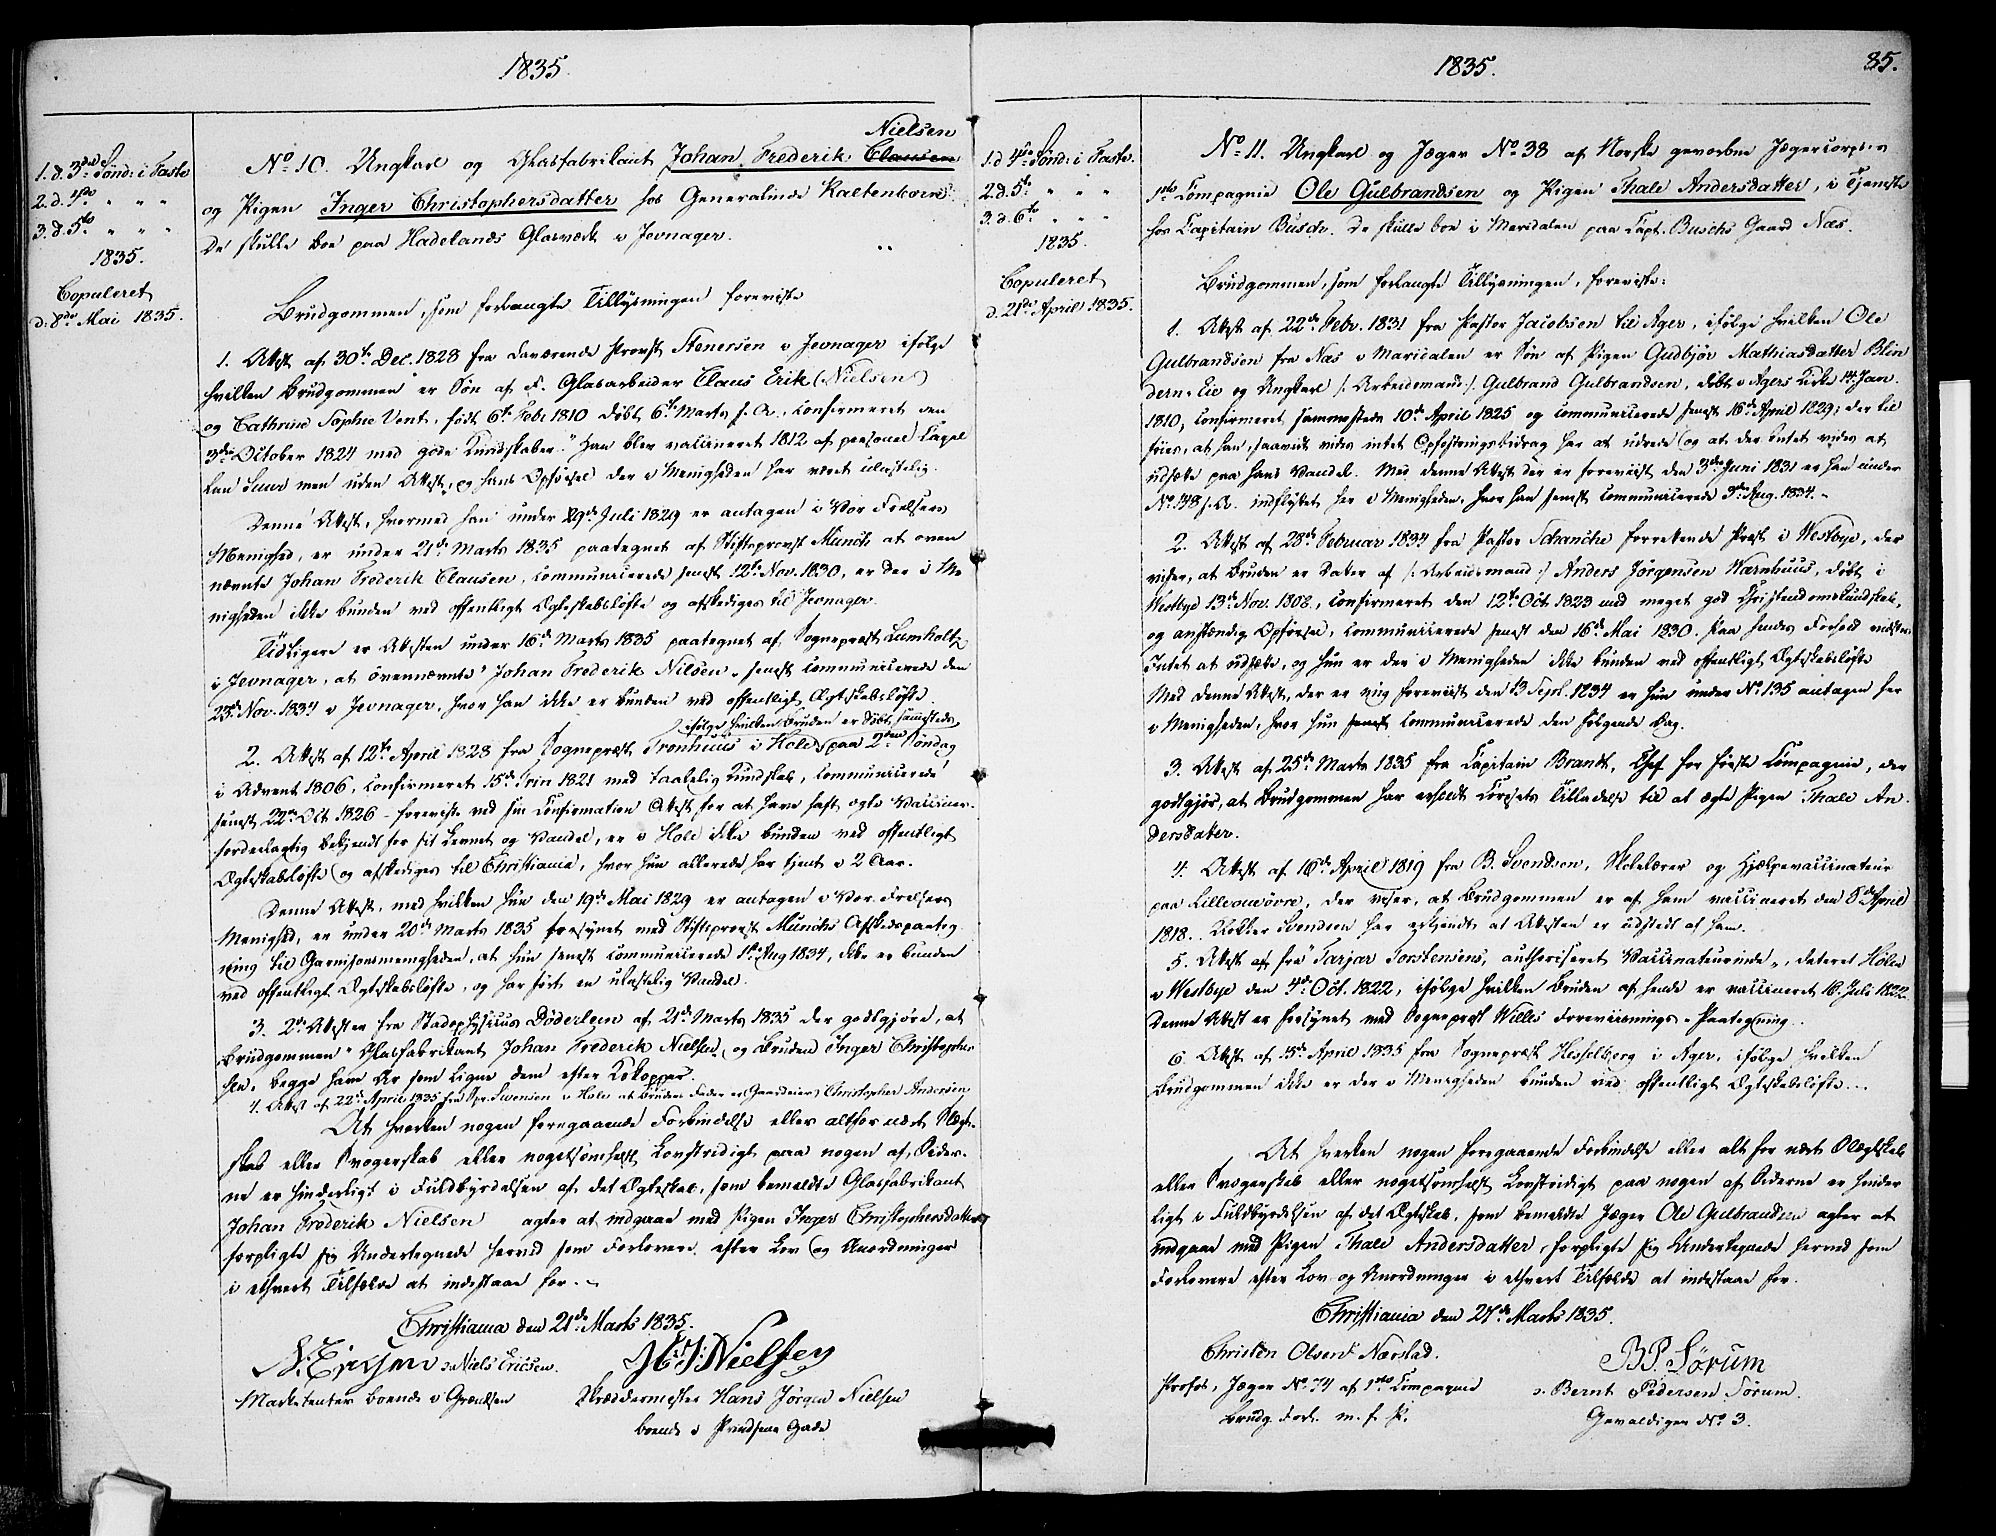 1835.
1. d. 3die Sönd: i Faste
2. d. 4de " " "
3. d. 5te " " "
1835.
Copuleret
d: 8de Mai 1835.
Nielsen
No 10. Ungkarl og Glasfabrikant Johan Frederik Clausen
og Pigen Inger Christophersdatter hos Generalinde Kaltenborn.
De skulle boe paa Hadelands Glasværk i Jevnager.
Brudgommen, som forlangte Tillysningen foreviste
1. Attest af 30te Dec. 1828 fra daværende Provst Stenersen i Jevnager ifølge
hvilken Brudgommen er Søn af F. Glasarbeider Claus Erik (Nielsen)
og Cathrine Sophie Vent, født 6te Febr 1810 døbt 6te Marts s. A., confirmeret den
3die October 1824 med gode Kundskaber. " Han blev vaccineret 1812 af personel Capel
lan men uden Attest, og hans Opførsel der i Menigheden har været ulastelig.
Denne Attest, hvormed han under 29de Juli 1829 er antagen i Vor Frelsers
Menighed, er under 21de Marts 1835 paategnet af Stiftsprovst Munch at oven
nævnte Johan Frederik Clausen, communicerede senest 12te Nov. 1830, er der i Me
nigheden ikke bunden ved offentligt Ægteskabsløfte og afskediges til Jevnager.
Tidligere er Attesten under 16de Marts 1835 paategnet af Sogneprest Lumholtz
i Jevnager, at ovennævnte " Johan Frederik Nilsen, senest communicerede den
23de Nov. 1834 i Jevnager, hvor han ikke er bunden ved offentligt Ægteskabsløfte.
ifølge hvilken Bruden er døbt sammesteds
2. Attest af 12te April 1828 fra Sogneprest Tronhuus i Hole, paa 2den Søndag
i Advent 1806, confirmeret 15de Trin 1821 med taalelig Kundskab, communicerede
senest 22de Oct 1826 - foreviste ved sin Confirmation Attest for at have haft ægte Vacciner
fordeelagtig bekjendt for sit Levnet og Vandel, er i Hole ikke bunden ved offentligt
Ægteskabsløfte og afskediges til Christiania, hvor hun allerede har tjent i 2 Aar.
Denne Attest, med hvilken hun den 19de Mai 1829 er antagen i Vor Frelsers
Menighed, er under 20de Marts 1835 forsynet med Stiftsprovst Munchs Afskedspaateg
ning til Garnisonsmenigheden, at hun senest communicerede 1ste Aug 1834, ikke er bunden
ved offentligt Ægteskabsløfte, og har ført en ulastelig Vandel.
3. 2de Attester fra Stadsphysicus Döderlein af 21de Marts 1835 der godtgjøre, at
Brudgommen " Glasfabrikant Johan Frederik Nielsen, og Bruden Inger Christopher
sen, begge have Ar som ligne dem efter Kokopper.
4. Attest af 22de April 1835 fra Spr. Svensen i Hole at Brudens Fader er Gaardeier Christopher Andersen
At hverken nogen foregaaende Forbindelse eller altfor nært Slægt-
skab eller Svogerskab eller nogetsomhelst Lovstridigt paa nogen af Sider-
ne er hinderligt i Fuldbyrdelsen af det Ægteskab, som bemeldte Glasfabrikant
Johan Frederik Nielsen agter at indgaae med Pigen Inger Christophersdatter
forpligte sig Undertegnede herved som Forlovere efter Lov og Anordninger
i ethvert Tilfælde at indestaae for.
Christiania den 21de Marts 1835.
N. Ericsen ɔ: Niels Ericsen.
Marketenter boende i Grændsen
H. J. Nielsen
Skræddermester Hans Jörgen Nielsen
boende i Prindsens Gade
1835.
85.
1. d. 4de Sönd: i Faste.
2. d. 5te " " "
3. d. 6te " " "
1835.
Copuleret
d. 21de April 1835.
No 11. Ungkarl og Jæger No 38 af Norske gevorbne Jægercorps's
1ste Compagnie Ole Gulbrandsen og Pigen Thale Andersdatter, i Tjeneste
hos Capitain Busch. De skulle boe i Maridalen paa Capt. Buschs Gaard Næs.
Brudgommen, som forlangte Tillysningen, foreviste:
1. Attest af 22de Febr. 1831 fra Pastor Jacobsen til Ager, ifølge hvilken Ole
Gulbrandsen fra Næs i Maridalen er Søn af Pigen Gudbjör Mathiasdatter Blin
dern-Eie og Ungkarl /: Arbeidsmand :/ Gulbrand Gulbrandsen, døbt i Agers Kirke 14. Jan.
1810, confirmeret sammesteds 10de April 1825 og communicerede senest 16de April 1829; der til
føies, at han, saavidt vides intet Opfostringsbidrag har at udrede og at der Intet vides at
udsætte paa hans Vandel. Med denne Attest der er foreviist den 3die Juni 1831 er han under
No 148 s. A. indflyttet her i Menigheden, hvor han senest communicerede 3die Aug. 1834.
2. Attest af 28de Februar 1834 fra Pastor Schanche forrettende Præst i Westbye, der
viser, at Bruden er Datter af /: Arbeidsmand :/ Anders Jörgensen Wærnhuus, døbt i
Westbye 13de Nov. 1808, confirmeret den 12te Oct 1823 med meget god Christendomskundskab,
og anstændig Opførsel, communicerede senest den 16de Mai 1830. Paa hendes Forhold vidstes
Intet at udsætte, og hun er der i Menigheden ikke bunden ved offentligt Ægteskabsløfte
Med denne Attest, der er mig foreviist den 13 Sept. 1834 er hun under No 135 antagen her
i Menigheden, hvor hun senest communicerede den følgende Dag.
3. Attest af 25de Marts 1835 fra Capitain Brandt, Chef for første Compagnie, der
godtgjør, at Brudgommen har erholdt Corpsets Tilladelse til at ægte Pigen Thale An-
dersdatter.
4. Attest af 16de April 1819 fra B. Svendsen, Skolelærer og Hjælpevaccinateur
paa Lillevonövre, der viser, at Brudgommen er af ham vaccineret den 8de April
1818. Klokker Svendsen har erkjendt at Attesten er udstedt af ham.
5. Attest fra " Tarjar Torstensens, authoriseret Vaccinateurinde, dateret Hölen
i Westbye den 4de Oct. 1822, ifølge hvilken Bruden af hende er vaccineret 16. Juli 1822.
Denne Attest er forsynet med Sogneprest Willes Foreviisnings-Paategning.
6. Attest af 15de April 1835 fra Sogneprest Hesselberg i Ager, ifølge hvilken
Brudgommen ikke er der i Menigheden bunden ved offentligt Ægteskabsløfte...
At hverken nogen foregaaende Forbindelse eller alt for nært Slægtskab
eller Svogerskab eller nogetsomhelst Lovstridigt paa nogen af Siderne er hinder
ligt i Fuldbyrdelsen af det Ægteskab, som bemeldte Jæger Ole Gulbrandsen agter at
indgaae med Pigen Thale Andersdatter, forpligte sig Undertegnede herved som
Forlovere efter Lov og Anordninger i ethvert Tilfælde at indestaae for.
Christiania den 27de Marts 1835.
Christen Olsen Nærstad.
Profos, Jæger No 74 af 1ste Compagnie
Brudg. Forl. m. f. P.
B P. Sörum
ɔ: Bernt Pedersen Sörum.
Gevaldiger No 3.